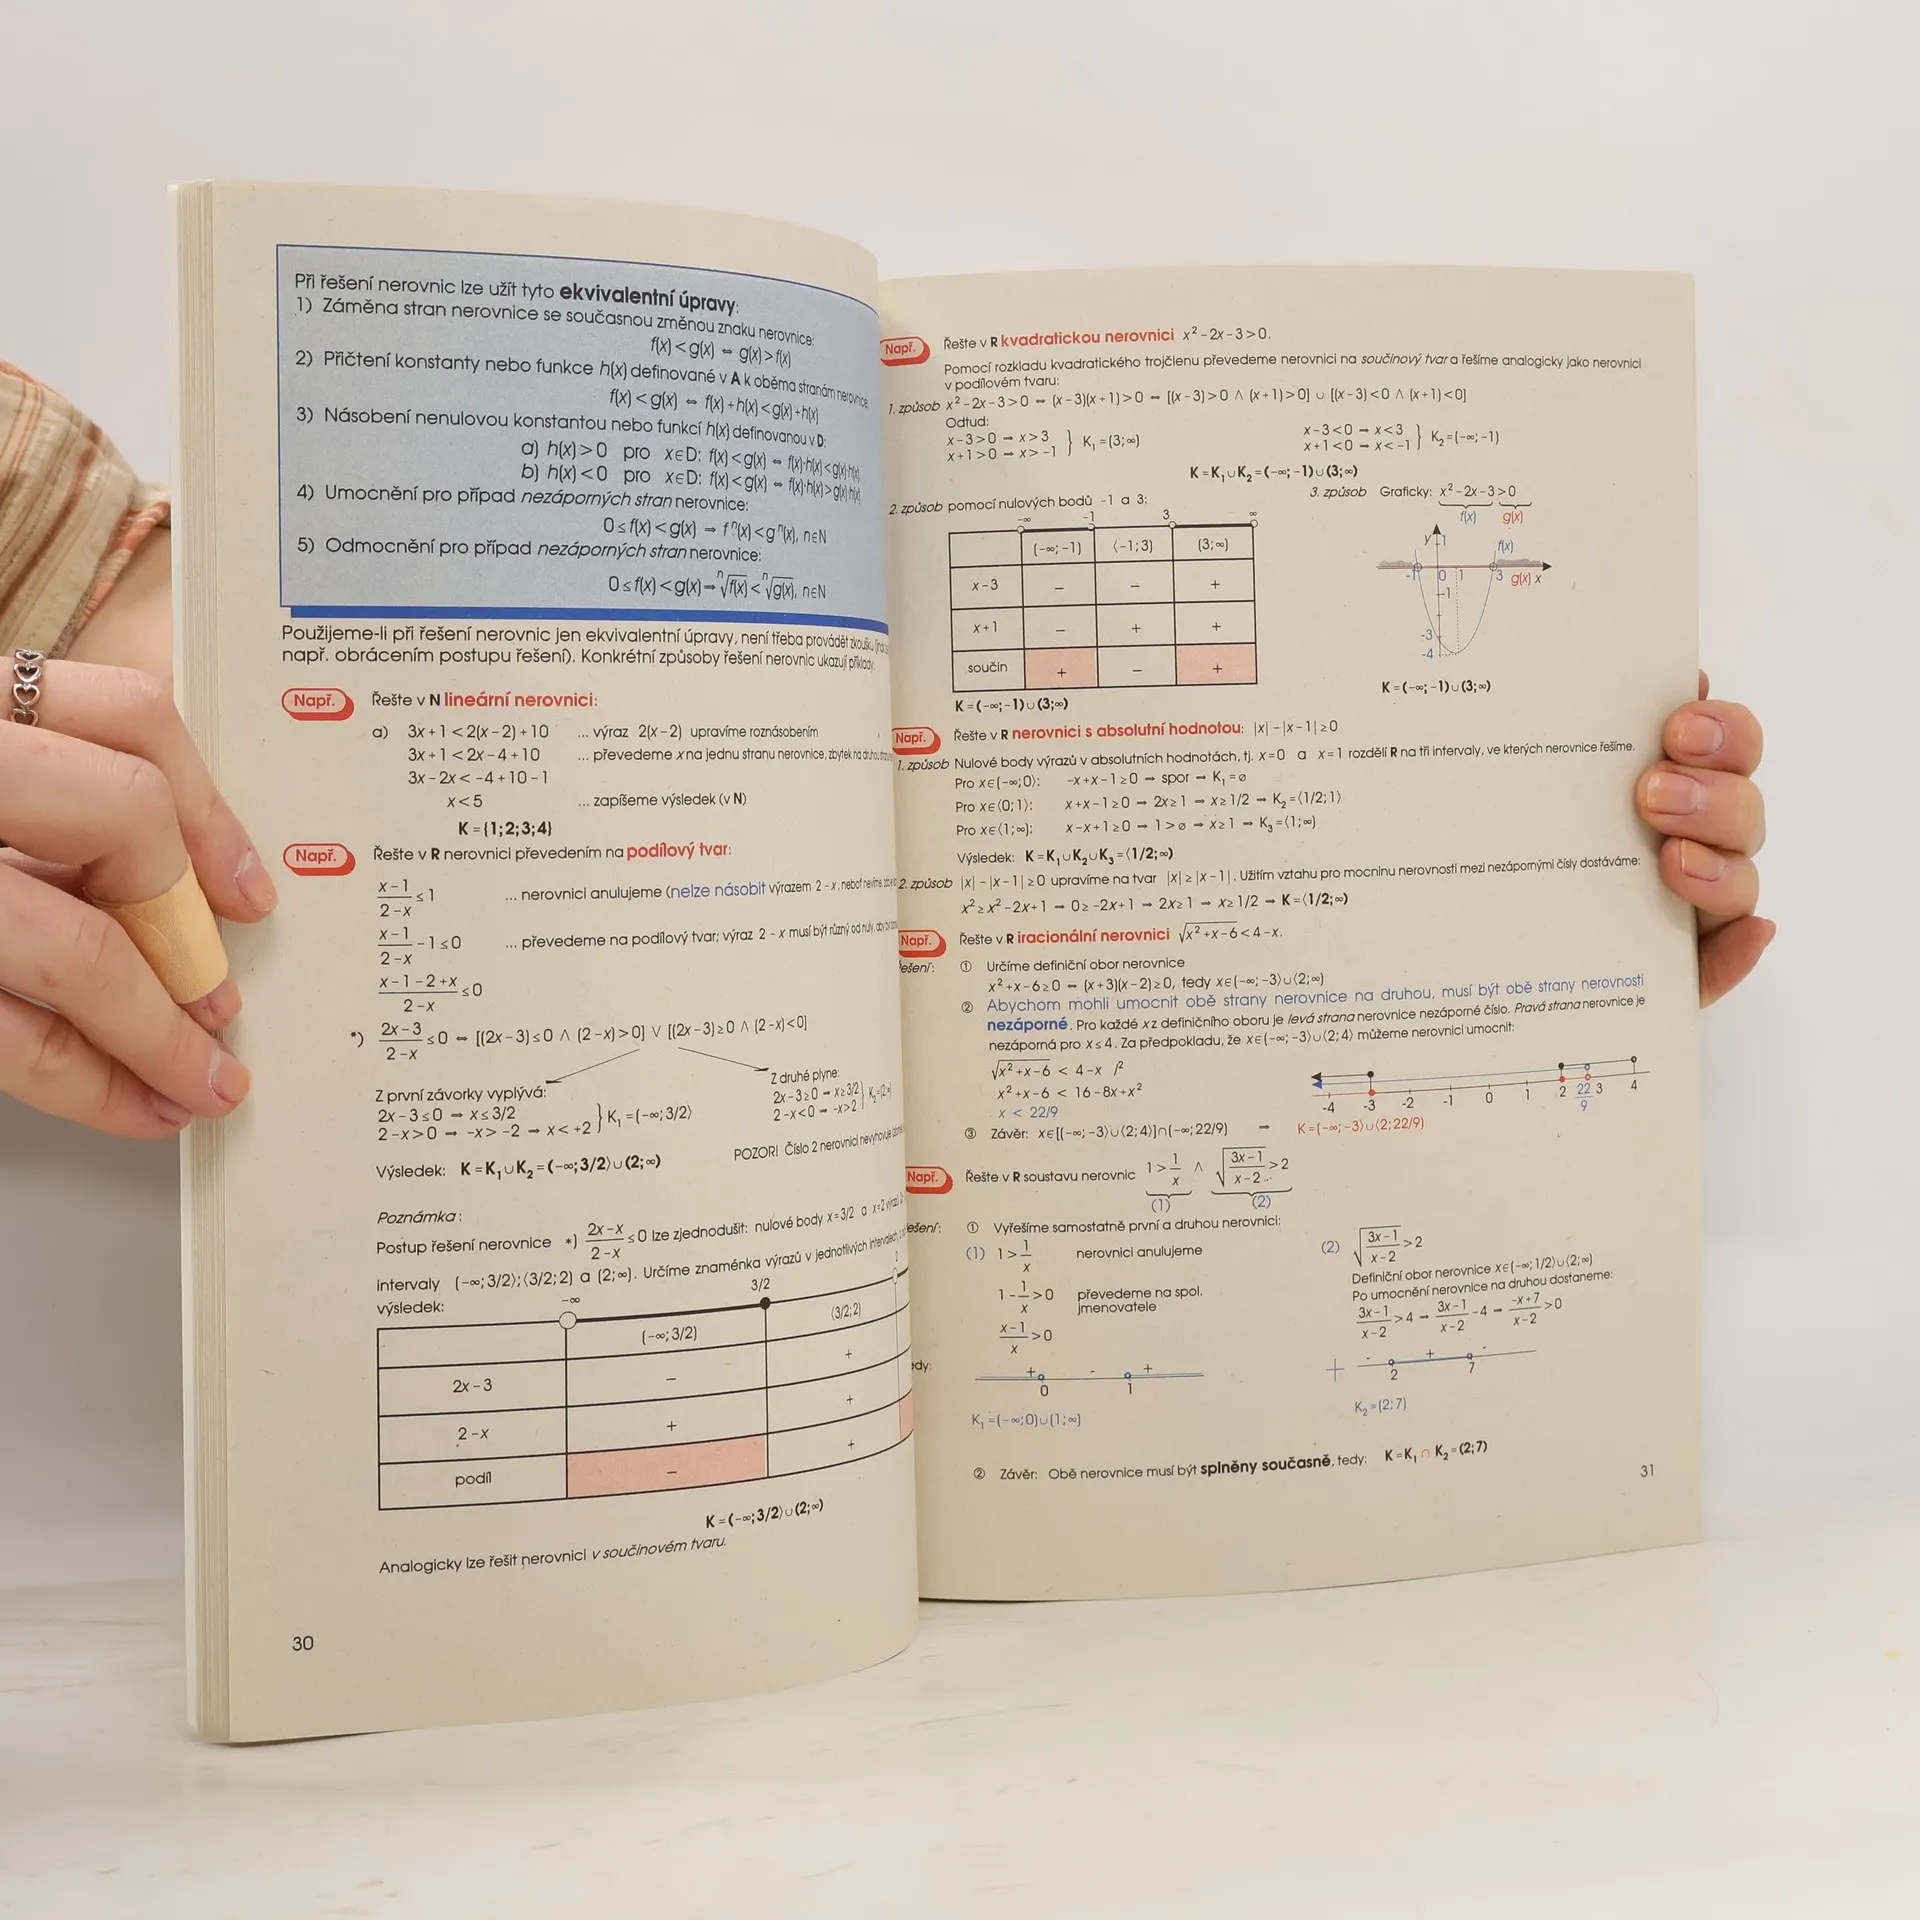 Při řešení nerovnic lze užít tyto ekvivalentní úpravy:
1) Záměna stran nerovnice se současnou změnou znaku nerovnice:
f(x) < g(x) ⇔ g(x) > f(x)
2) Přičtení konstanty nebo funkce h(x) definované v A k oběma stranám nerovnice
f(x) < g(x) ⇔ f(x) + h(x) < g(x) + h(x)
3) Násobení nenulovou konstantou nebo funkcí h(x) definovanou v D:
a) h(x) > 0 pro x∈D: f(x) < g(x) ⇔ f(x)·h(x) < g(x)·h(x)
b) h(x) < 0 pro x∈D: f(x) < g(x) ⇔ f(x)·h(x) > g(x)·h(x)
4) Umocnění pro případ nezáporných stran nerovnice:
0 ≤ f(x) < g(x) → fⁿ(x) < gⁿ(x), n∈N
5) Odmocnění pro případ nezáporných stran nerovnice:
0 ≤ f(x) < g(x) → ⁿ√f(x) < ⁿ√g(x), n∈N
Použijeme-li při řešení nerovnic jen ekvivalentní úpravy, není třeba provádět zkoušku
např. obrácením postupu řešení). Konkrétní způsoby řešení nerovnic ukazují příklady
Např. Řešte v N lineární nerovnici:
a) 3x + 1 < 2(x - 2) + 10 ... výraz 2(x - 2) upravíme roznásobením
3x + 1 < 2x - 4 + 10 ... převedeme x na jednu stranu nerovnice, zbytek na druhou
3x - 2x < -4 + 10 - 1
x < 5 ... zapíšeme výsledek (v N)
K = {1; 2; 3; 4}
Např. Řešte v R nerovnici převedením na podílový tvar:
(x - 1)/(2 - x) ≤ 1 ... nerovnici anulujeme (nelze násobit výrazem 2 - x, neboť nevíme,
(x - 1)/(2 - x) - 1 ≤ 0 ... převedeme na podílový tvar; výraz 2 - x musí být různý od nuly, aby
(x - 1 - 2 + x)/(2 - x) ≤ 0
*) (2x - 3)/(2 - x) ≤ 0 ⇔ [(2x - 3) ≤ 0 ∧ (2 - x) > 0] ∨ [(2x - 3) ≥ 0 ∧ (2 - x) < 0]
Z první závorky vyplývá: Z druhé plyne:
2x - 3 ≤ 0 → x ≤ 3/2 2x - 3 ≥ 0 → x ≥ 3/2
2 - x > 0 → -x > -2 → x < +2 } K₁ = (-∞; 3/2⟩ 2 - x < 0 → -x > 2 }
Výsledek: K = K₁ ∪ K₂ = (-∞; 3/2⟩ ∪ (2; ∞) POZOR! Číslo 2 nerovnici nevyhovuje
Poznámka:
Postup řešení nerovnice *) (2x - x)/(2 - x) ≤ 0 lze zjednodušit: nulové body x = 3/2 a x = 2
intervaly (-∞; 3/2⟩; ⟨3/2; 2) a (2; ∞). Určíme znaménka výrazů v jednotlivých intervalech
výsledek:
-∞ 3/2 2
(-∞; 3/2⟩ ⟨3/2; 2)
2x - 3 - +
2 - x + +
podíl - +
K = (-∞; 3/2⟩ ∪ (2; ∞)
Analogicky lze řešit nerovnici v součinovém tvaru.
30
Např. Řešte v R kvadratickou nerovnici x² - 2x - 3 > 0.
Pomocí rozkladu kvadratického trojčlenu převedeme nerovnici na součinový tvar a řešíme analogicky jako nerovnici
v podílovém tvaru:
1. způsob x² - 2x - 3 > 0 ⇔ (x - 3)(x + 1) > 0 ⇔ [(x - 3) > 0 ∧ (x + 1) > 0] ∪ [(x - 3) < 0 ∧ (x + 1) < 0]
Odtud:
x - 3 > 0 → x > 3 x - 3 < 0 → x < 3
x + 1 > 0 → x > -1 } K₁ = (3; ∞) x + 1 < 0 → x < -1 } K₂ = (-∞; -1)
K = K₁ ∪ K₂ = (-∞; -1) ∪ (3; ∞)
2. způsob pomocí nulových bodů -1 a 3: 3. způsob Graficky: x² - 2x - 3 > 0
f(x) g(x)
-∞ -1 3 ∞
(-∞; -1) (-1; 3) (3; ∞)
x - 3 - - +
x + 1 - + +
součin + - +
K = (-∞; -1) ∪ (3; ∞)
y 1 f(x)
-1 0 1 3 g(x) x
-1
-3
-4
K = (-∞; -1) ∪ (3; ∞)
Např. Řešte v R nerovnici s absolutní hodnotou: |x| - |x - 1| ≥ 0
1. způsob Nulové body výrazů v absolutních hodnotách, tj. x = 0 a x = 1 rozdělí R na tři intervaly, ve kterých nerovnice řešíme.
Pro x∈(-∞; 0): -x + x - 1 ≥ 0 → spor → K₁ = ø
Pro x∈⟨0; 1): x + x - 1 ≥ 0 → 2x ≥ 1 → x ≥ 1/2 → K₂ = ⟨1/2; 1)
Pro x∈⟨1; ∞): x - x + 1 ≥ 0 → 1 > ø → x ≥ 1 → K₃ = ⟨1; ∞)
Výsledek: K = K₁ ∪ K₂ ∪ K₃ = ⟨1/2; ∞)
2. způsob |x| - |x - 1| ≥ 0 upravíme na tvar |x| ≥ |x - 1|. Užitím vztahu pro mocninu nerovnosti mezi nezápornými čísly dostáváme:
x² ≥ x² - 2x + 1 → 0 ≥ -2x + 1 → 2x ≥ 1 → x ≥ 1/2 → K = ⟨1/2; ∞)
Např. Řešte v R iracionální nerovnici √(x² + x - 6) < 4 - x.
ešení: ① Určíme definiční obor nerovnice
x² + x - 6 ≥ 0 ⇔ (x + 3)(x - 2) ≥ 0, tedy x∈(-∞; -3⟩ ∪ ⟨2; ∞)
② Abychom mohli umocnit obě strany nerovnice na druhou, musí být obě strany nerovnosti
nezáporné. Pro každé x z definičního oboru je levá strana nerovnice nezáporné číslo. Pravá strana nerovnice je
nezáporná pro x ≤ 4. Za předpokladu, že x∈(-∞; -3⟩ ∪ ⟨2; 4⟩ můžeme nerovnici umocnit:
√(x² + x - 6) < 4 - x /²
x² + x - 6 < 16 - 8x + x²
x < 22/9
-4 -3 -2 -1 0 1 2 22/9 3 4
③ Závěr: x∈[(-∞; -3⟩ ∪ ⟨2; 4⟩] ∩ (-∞; 22/9) → K = (-∞; -3⟩ ∪ ⟨2; 22/9)
Např. Řešte v R soustavu nerovnic 1 > 1/x ∧ √((3x - 1)/(x - 2)) > 2
(1) (2)
ešení: ① Vyřešíme samostatně první a druhou nerovnici:
(1) 1 > 1/x nerovnici anulujeme
1 - 1/x > 0 převedeme na spol. jmenovatele
(x - 1)/x > 0
edy:
+ - +
0 1
K₁ = (-∞; 0) ∪ (1; ∞)
(2) √((3x - 1)/(x - 2)) > 2
Definiční obor nerovnice x∈(-∞; 1/2) ∪ (2; ∞)
Po umocnění nerovnice na druhou dostaneme:
(3x - 1)/(x - 2) > 4 → (3x - 1)/(x - 2) - 4 → (-x + 7)/(x - 2) > 0
- + -
2 7
K₂ = (2; 7)
② Závěr: Obě nerovnice musí být splněny současně, tedy: K = K₁ ∩ K₂ = (2; 7)
31